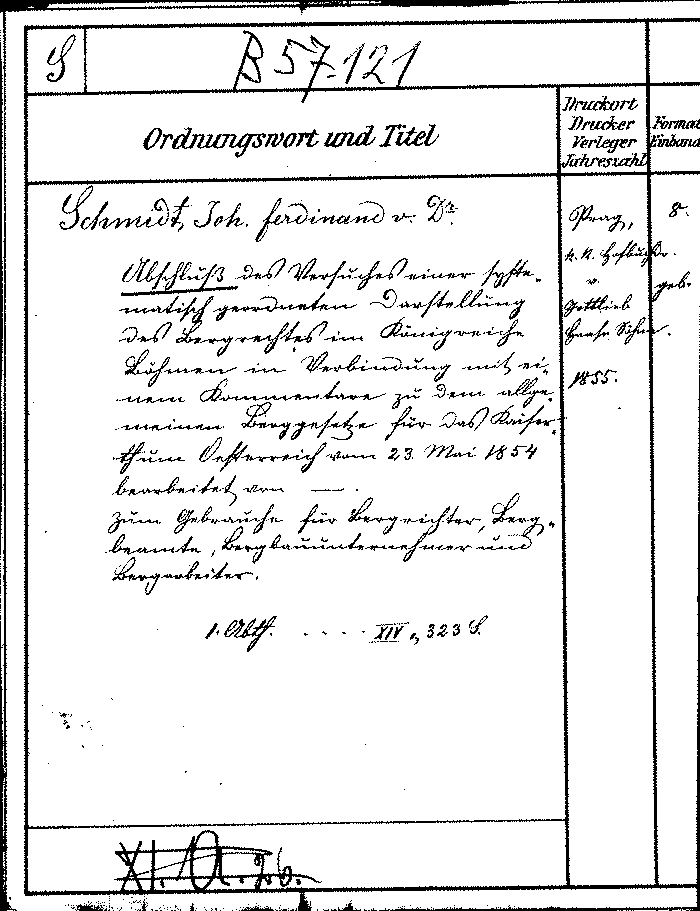 S
B 57.121
Ordnungswort und Titel
Druckort
Drucker
Verleger
Jahreszahl
Format
Einband
Schmidt, Joh. Ferdinand v. Dr.
Abschluß des Versuches einer syste-
matisch geordneten Darstellung
des Bergrechtes im Königreiche
Böhmen in Verbindung mit ei-
nem Kommentare zu dem allge-
meinen Berggesetze für das Kaiser-
thum Oesterreich vom 23. Mai 1854
bearbeitet von —.
zum Gebrauche für Bergrichter, Berg-
beamte, Bergbauunternehmer und
Bergarbeiter.
1. Abth. . . . . XIV, 323 S.
Prag,
k. k. Hofbuchdr.
v.
Gottlieb
Haase Söhne.
1855.
8.
geb.
XI. A. 26.